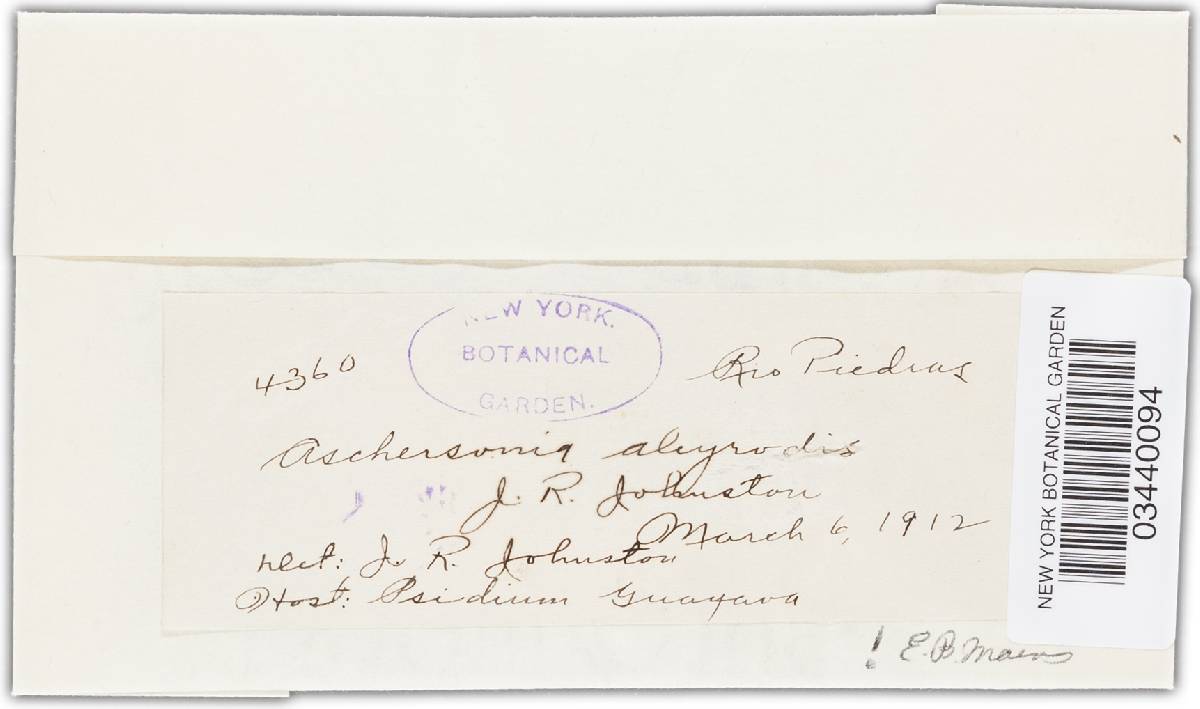 NEW YORK.
BOTANICAL
GARDEN.
4360
Rio Piedras
Aschersonia aleyrodis
J. R. Johnston
March 6, 1912
Det: J. R. Johnston
Host: Psidium Guayava
! E.B. Mains
NEW YORK BOTANICAL GARDEN
03440094